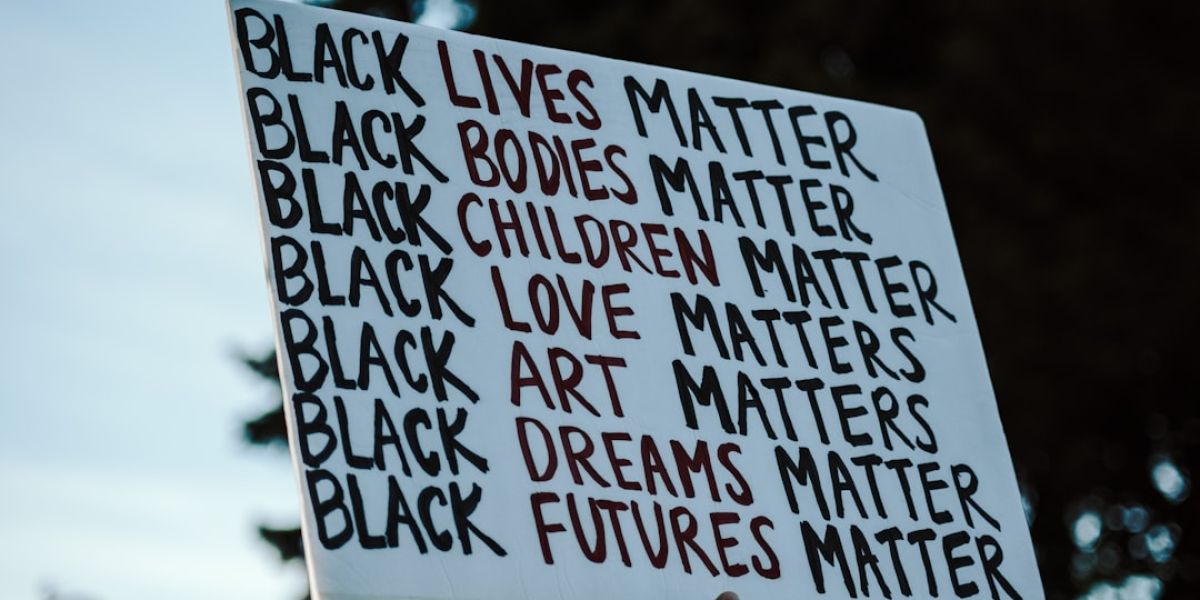 BLACK LIVES MATTER
BLACK BODIES MATTER
BLACK CHILDREN MATTER
BLACK LOVE MATTERS
BLACK ART MATTERS
BLACK DREAMS MATTER
BLACK FUTURES MATTER